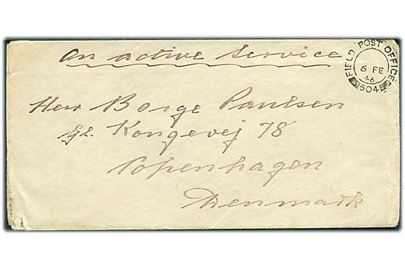 On active Service
FIELD POST OFFICE
6 FE
46
504
Herr Borge Paulsen
Gl. Kongevej 78
Copenhagen
Denmark